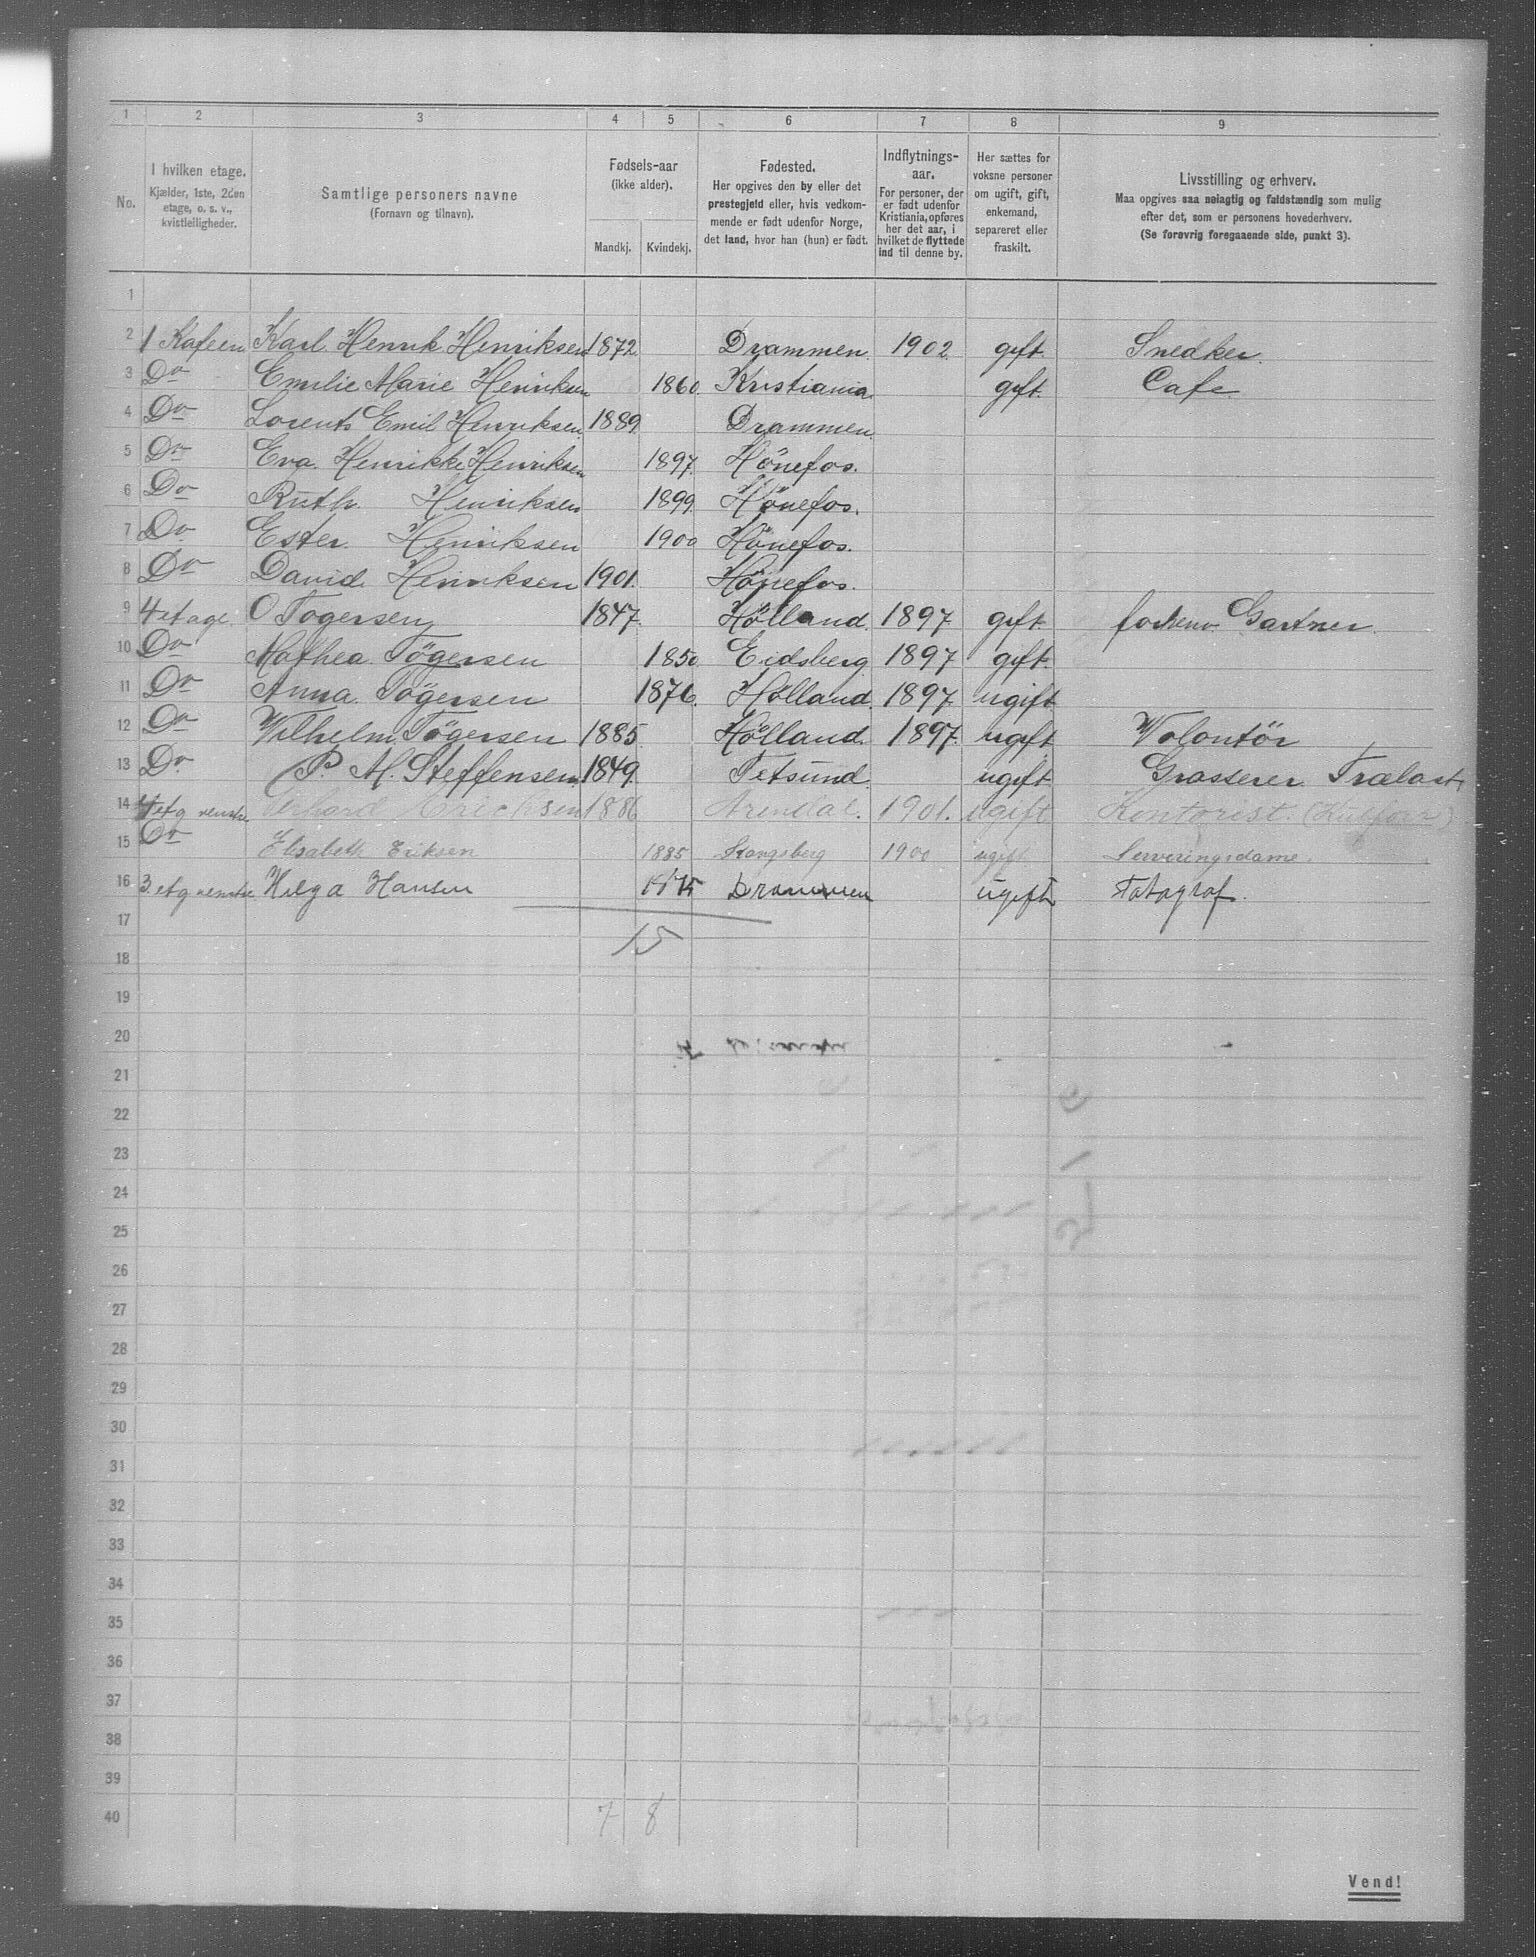 1 2 3 4 5 6 7 8 9
No.
I hvilken etage.
Kjælder, 1ste, 2den
etage, o. s. v.,
kvistleiligheder.
Samtlige personers navne
(Fornavn og tilnavn).
Fødsels-aar
(ikke alder).
Mandkj. Kvindekj.
Fødested.
Her opgives den by eller det
prestegjeld eller, hvis vedkom-
mende er født udenfor Norge,
det land, hvor han (hun) er født.
Indflytnings-
aar.
For personer, der
er født udenfor
Kristiania, opføres
her det aar, i
hvilket de flyttede
ind til denne by.
Her sættes for
voksne personer
om ugift, gift,
enkemand,
separeret eller
fraskilt.
Livsstilling og erhverv.
Maa opgives saa nøiagtig og fuldstændig som mulig
efter det, som er personens hovederhverv.
(Se forøvrig foregaaende side, punkt 3).
1
2 1 Kafeen Karl Henrik Henriksen 1872 Drammen 1902 gift. Snedker.
3 Do Emilie Marie Henriksen 1860 Kristiania gift. Cafe
4 Do Lorents Emil Henriksen 1889 Drammen.
5 Do Eva Henrikke Henriksen 1897 Hönefos.
6 Do Ruth Henriksen 1899 Hönefos.
7 Do Ester Henriksen 1900 Hönefos.
8 Do David Henriksen 1901. Hönefos.
9 4 etage O Togersen 1847 Hölland. 1897 gift. Gartner.
10 Do Mathea Tögersen 1850 Eidsberg 1897 gift.
11 Do Anna Tögersen 1876. Hölland. 1897 ugift
12 Do Vilhelm Tögersen 1885 Hölland. 1897 ugift Volontör
13 Do P. M. Steffensen 1849. Fetsund ugift Grosserer Trælast,
14 4 etg venstre Erichsen 1886 Arendal. 1901. ugift Kontorist.
15 Do Elisabeth Eriksen 1885 Kongsberg 1900 ugift Serveringsdame.
16 3 etg venstre Helga Hansen 1875 Drammen ugift Fotograf.
17
15
18
19
20
21
22
23
24
25
26
27
28
29
30
31
32
33
34
35
36
37
38
39
40 7 8
Vend!